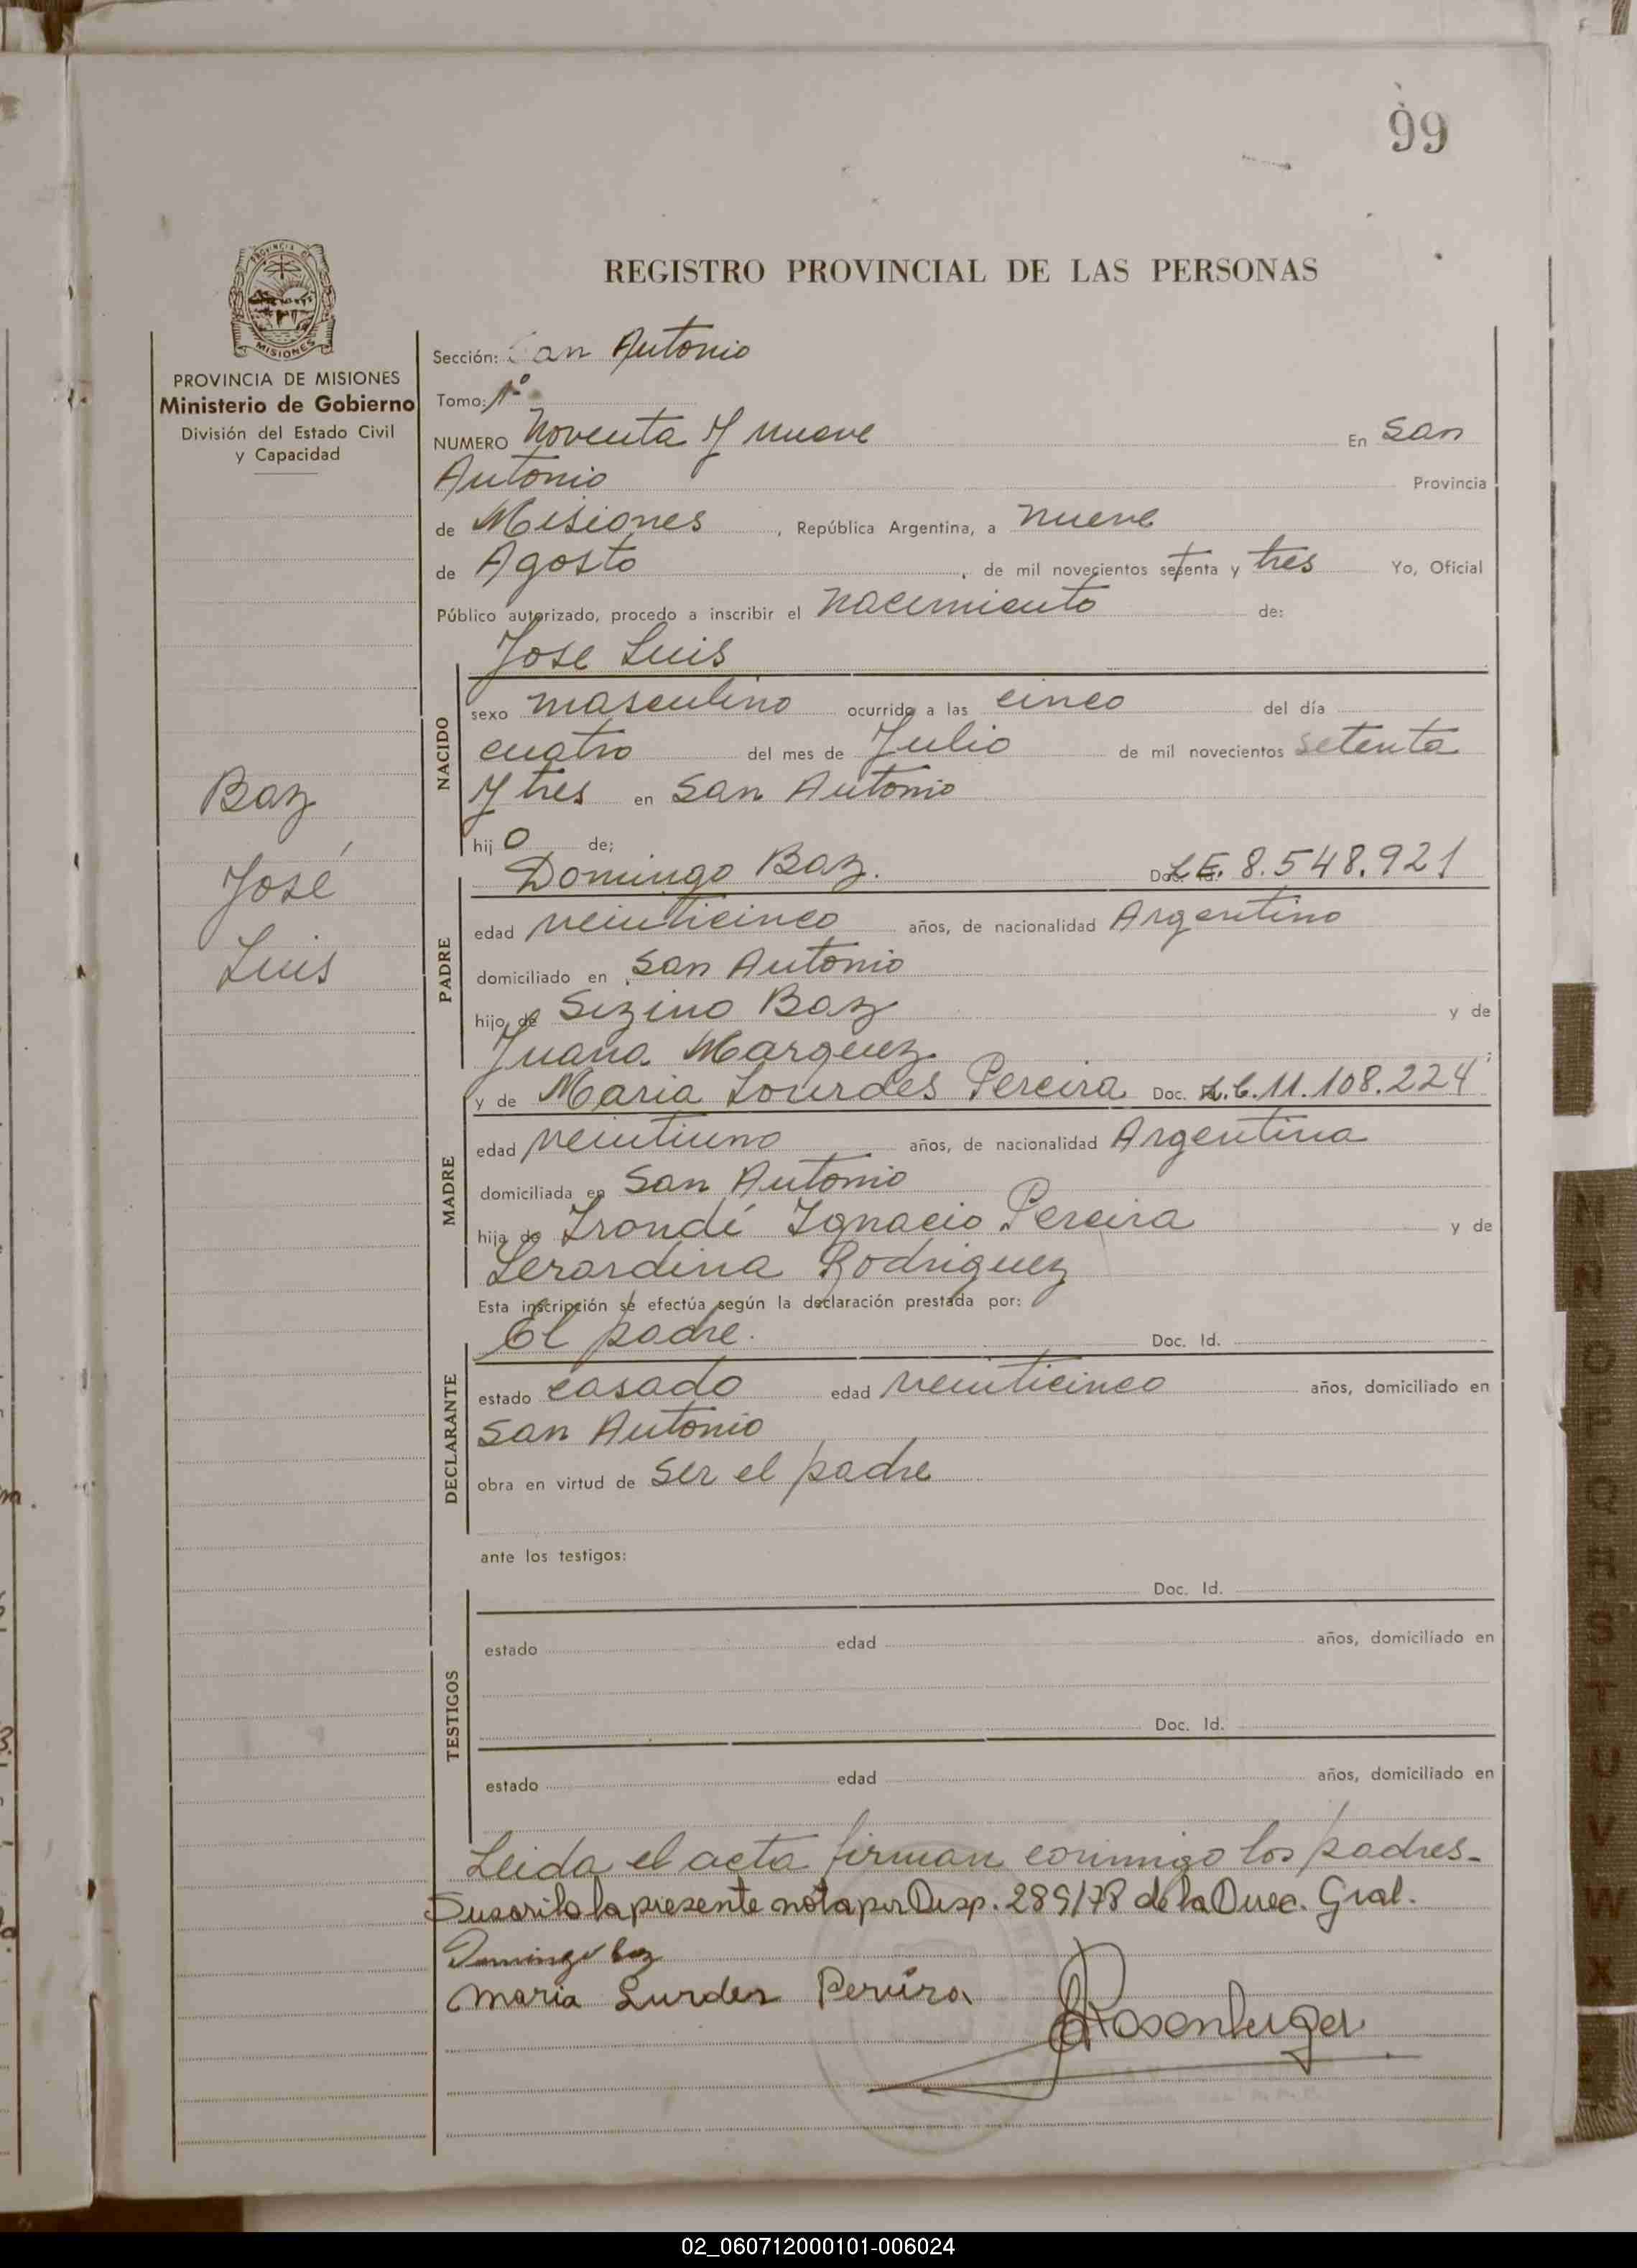 99
PROVINCIA DE
MISIONES
PROVINCIA DE MISIONES
Ministerio de Gobierno
División del Estado Civil
y Capacidad
Baz
José
Luis
REGISTRO PROVINCIAL DE LAS PERSONAS
Sección: San Antonio
Tomo: 1º
NUMERO Noventa y nueve En San
Antonio Provincia
de Misiones, República Argentina, a nueve
de Agosto, de mil novecientos setenta y tres Yo, Oficial
Público autorizado, procedo a inscribir el nacimiento de:
Jose Luis
NACIDO
sexo masculino ocurrido a las cinco del día
cuatro del mes de Julio de mil novecientos setenta
y tres en San Antonio
hijo de;
Domingo Baz. Doc. Id. L.E. 8.548.921
PADRE
edad veinticinco años, de nacionalidad Argentino
domiciliado en San Antonio
hijo de Sizino Baz y de
Juana Marquez;
y de Maria Lourdes Pereira Doc. L.C. 11.108.224
MADRE
edad veintiuno años, de nacionalidad Argentina
domiciliada en San Antonio
hija de Irondi Ignacio Pereira y de
Lerardina Rodriguez
Esta inscripción se efectúa según la declaración prestada por:
El padre. Doc. Id.
DECLARANTE
estado casado edad veinticinco años, domiciliado en
San Antonio
obra en virtud de ser el padre
ante los testigos:
Doc. Id.
TESTIGOS
estado edad años, domiciliado en
Doc. Id.
estado edad años, domiciliado en
Leida el acta firman conmigo los padres-
la presente nota por Disp. 289/78 de la Direc. Gral.
Domingo Baz
Maria Lurdes Pereira
Rosenberger
N
N
O
P
Q
R
S
T
U
V
W
X
02_060712000101-006024